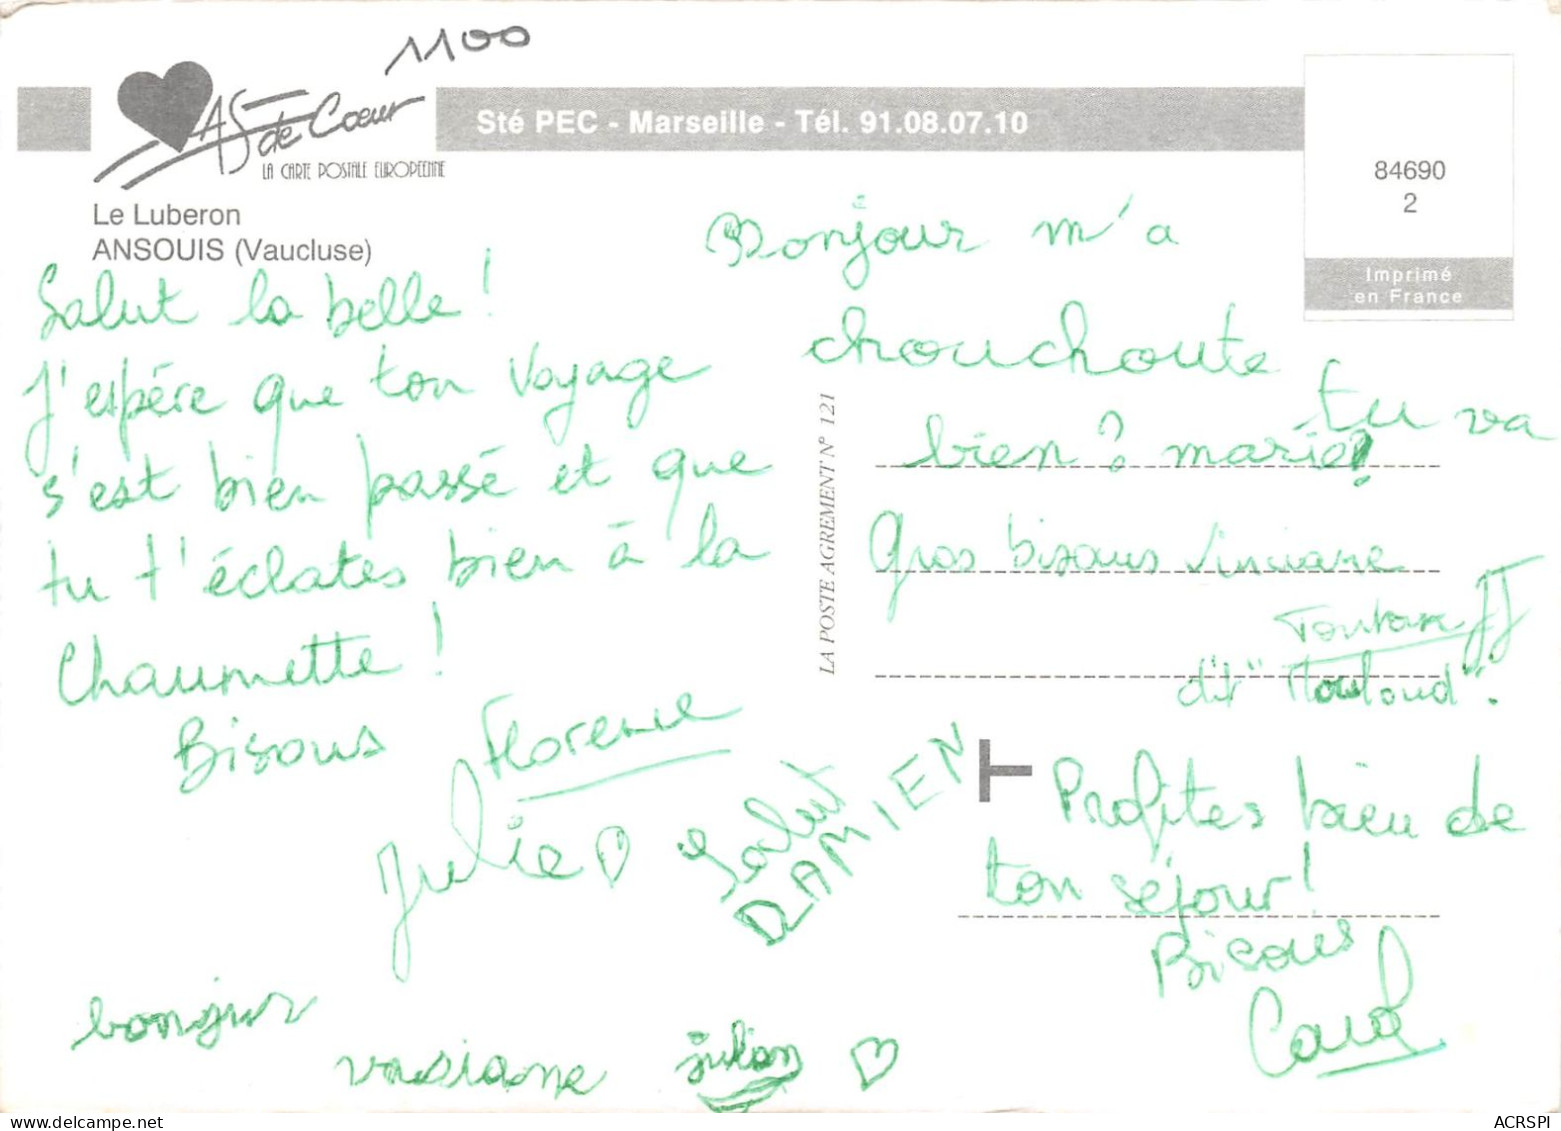 1100
AS de Coeur
LA CARTE POSTALE EUROPEENNE
Sté PEC - Marseille - Tél. 91.08.07.10
84690
2
Imprimé
en France
Le Luberon
ANSOUIS (Vaucluse)
Salut la belle !
J'espére que ton voyage
s'est bien passé et que
tu t'éclates bien à la
Chaumette !
Bisous Florence
Julie
Salut
DAMIEN
bonjur
julian
LA POSTE AGREMENT N° 121
Bonjour m'a
chouchoute tu va
bien ? marie !
Gros bisous
dit "Mouloud".
Profites bien de
ton séjour !
Bisous
Carol
ACRSPI